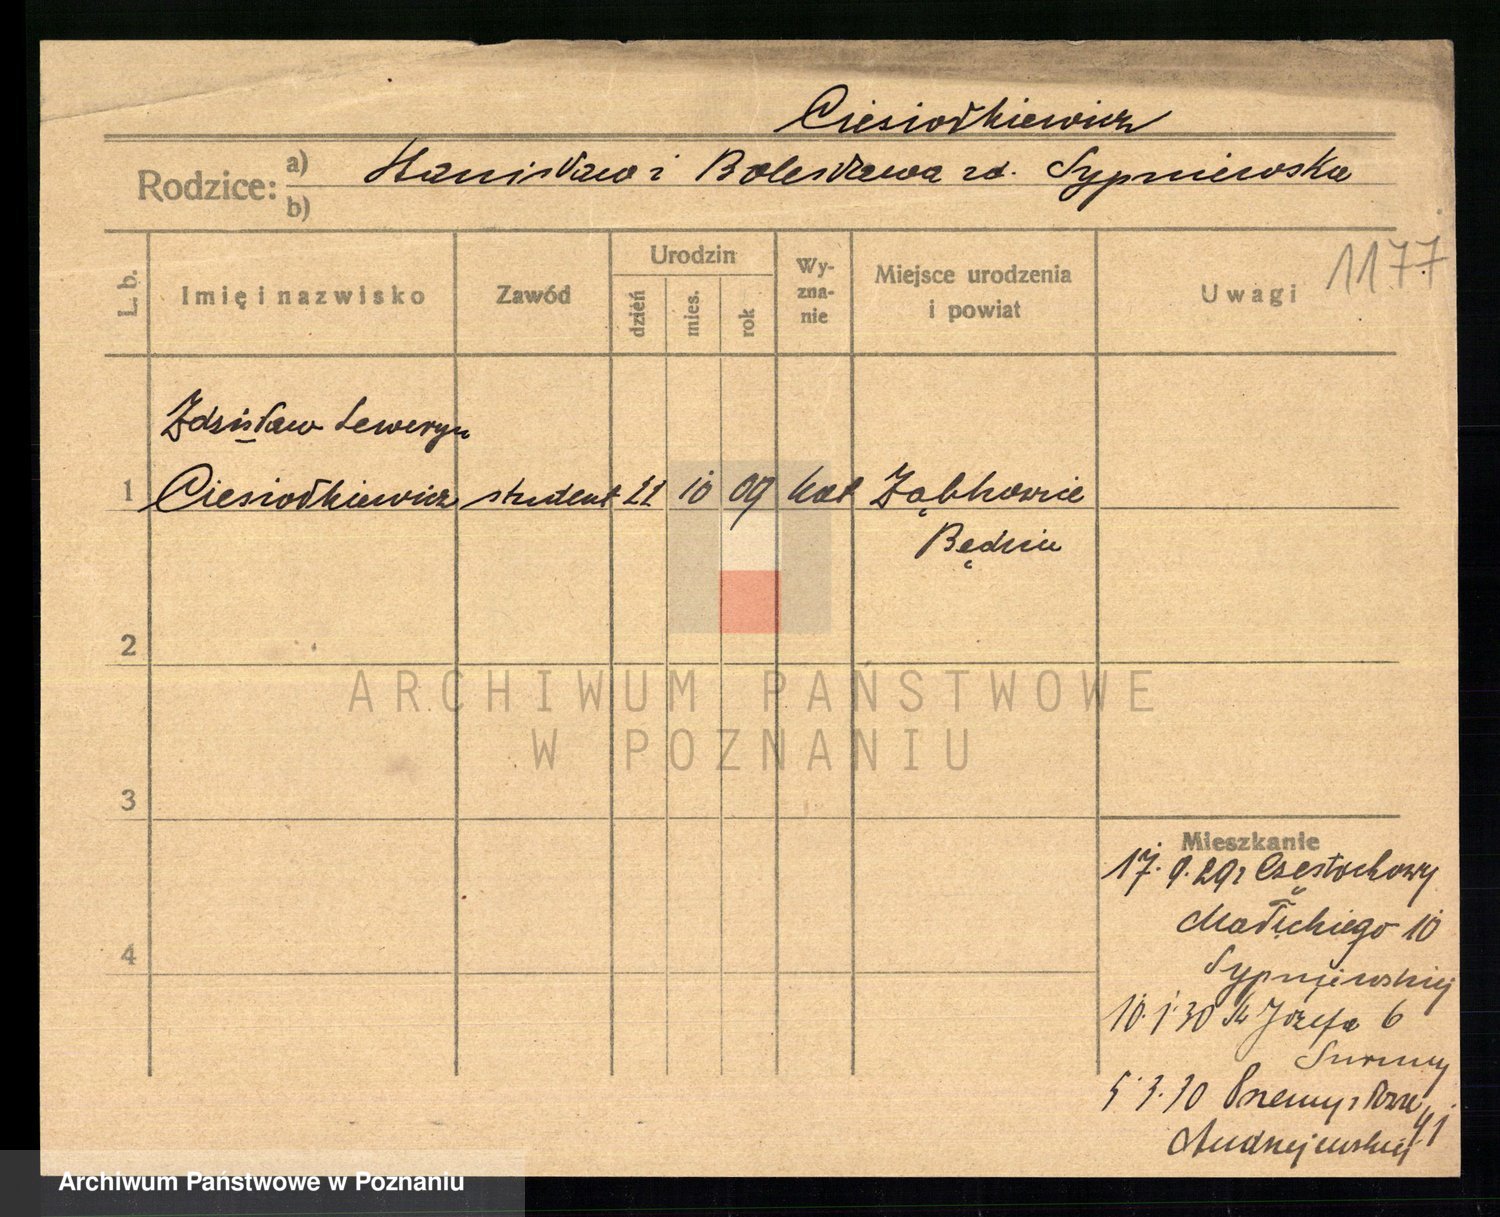 Ciesiołkiewicz
Rodzice: a) Stanisław i Bolesława zd. Sypniewska
b)
1177
L. b. Imię i nazwisko Zawód Urodzin dzień mies. rok Wyznanie Miejsce urodzenia i powiat Uwagi
Zdzisław Seweryn
1 Ciesiołkiewicz student 22 10 09 kat Ząbkowice
Będzin
2
ARCHIWUM PAŃSTWOWE
W POZNANIU
3
Mieszkanie
17.9.29 z Częstochowy
Małeckiego 10
4
Sypniewskiej
10.1.30 Św Józefa 6
Surmy
5.3.30 Przemysłowa 41
Andrzejewskiej
Archiwum Państwowe w Poznaniu